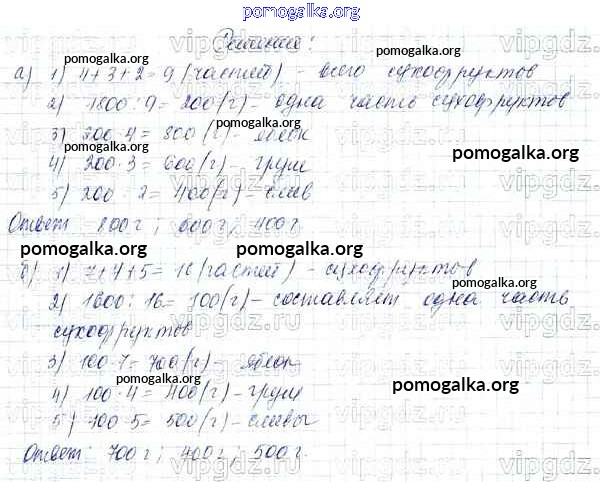 pomogalka.org
Решение:
pomogalka.org pomogalka.org
а) 1) 4+3+2=9 (частей) - всего сухофруктов
2) 1800:9=200(г) - одна часть сухофруктов
pomogalka.org
3) 200·4=800(г) - яблок
pomogalka.org
4) 200·3=600(г) - груш
5) 200·2=400(г) - слив
pomogalka.org
Ответ: 800г; 600г; 400г
pomogalka.org pomogalka.org
б) 1) 7+4+5=16(частей) - сухофруктов
2) 1600:16=100(г) - составляет одна часть
сухофруктов
pomogalka.org
3) 100·7=700(г) - яблок
pomogalka.org
4) 100·4=400(г) - груш
pomogalka.org
5) 100·5=500(г) - сливы
Ответ: 700г; 400г; 500г.